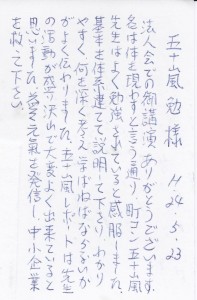 五十嵐勉様 H24.5.23
法人会での御講演ありがとうございます。
名は体を現わすと言う通り町コン五十嵐
先生はよく勉強されていると感服しました。
基本を体系建てて説明して下さり、わかり
やすく、何を深く考え、学ばねばならないか
がよく伝わりました。五十嵐レポートは先生
の活動が盛り沢山で大変よく出来ていると
思います。益々元氣を発信し、中小企業
を救って下さい。